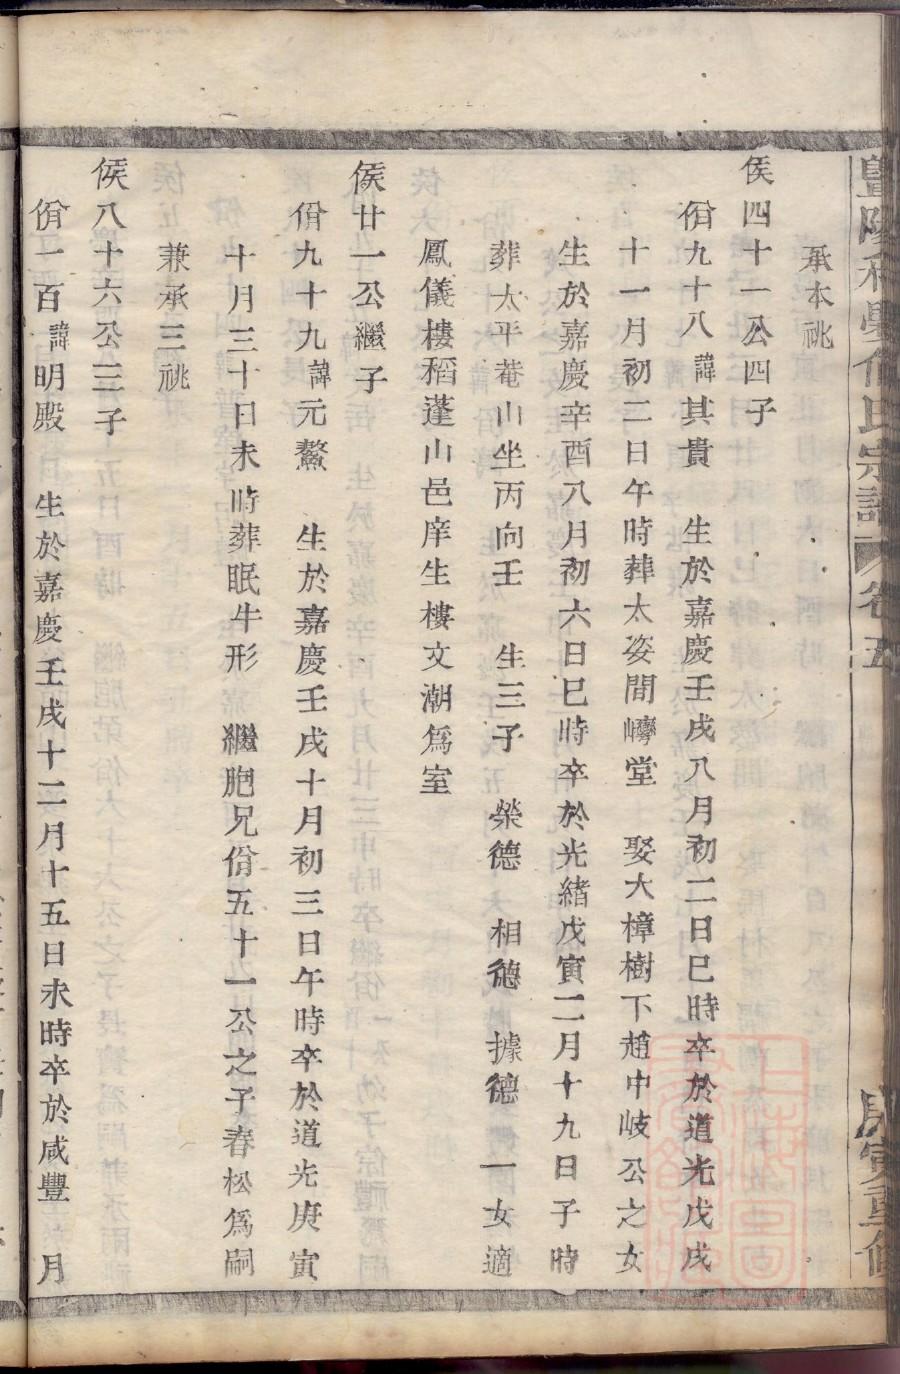 暨陽和 氏宗譜 卷五 戊寅重修
承本祧
侯四十一公四子
佾九十八諱其貴 生於嘉慶壬戌八月初二日巳時卒於道光戊戌
十一月初二日午時葬太姿間嶹堂 娶大樟樹下趙中岐公之女
生於嘉慶辛酉八月初六日巳時卒於光緒戊寅二月十九日子時
葬太平菴山坐丙向壬 生三子 榮德 相德 據德 一女適
鳳儀樓稻蓬山邑庠生樓文潮爲室
侯廿一公繼子
佾九十九諱元鰲 生於嘉慶壬戌十月初三日午時卒於道光庚寅
十月三十日未時葬眠牛形 繼胞兄佾五十一公之子春松爲嗣
兼承三祧
侯八十六公三子
佾一百諱明殿 生於嘉慶壬戌十二月十五日未時卒於咸豐 月